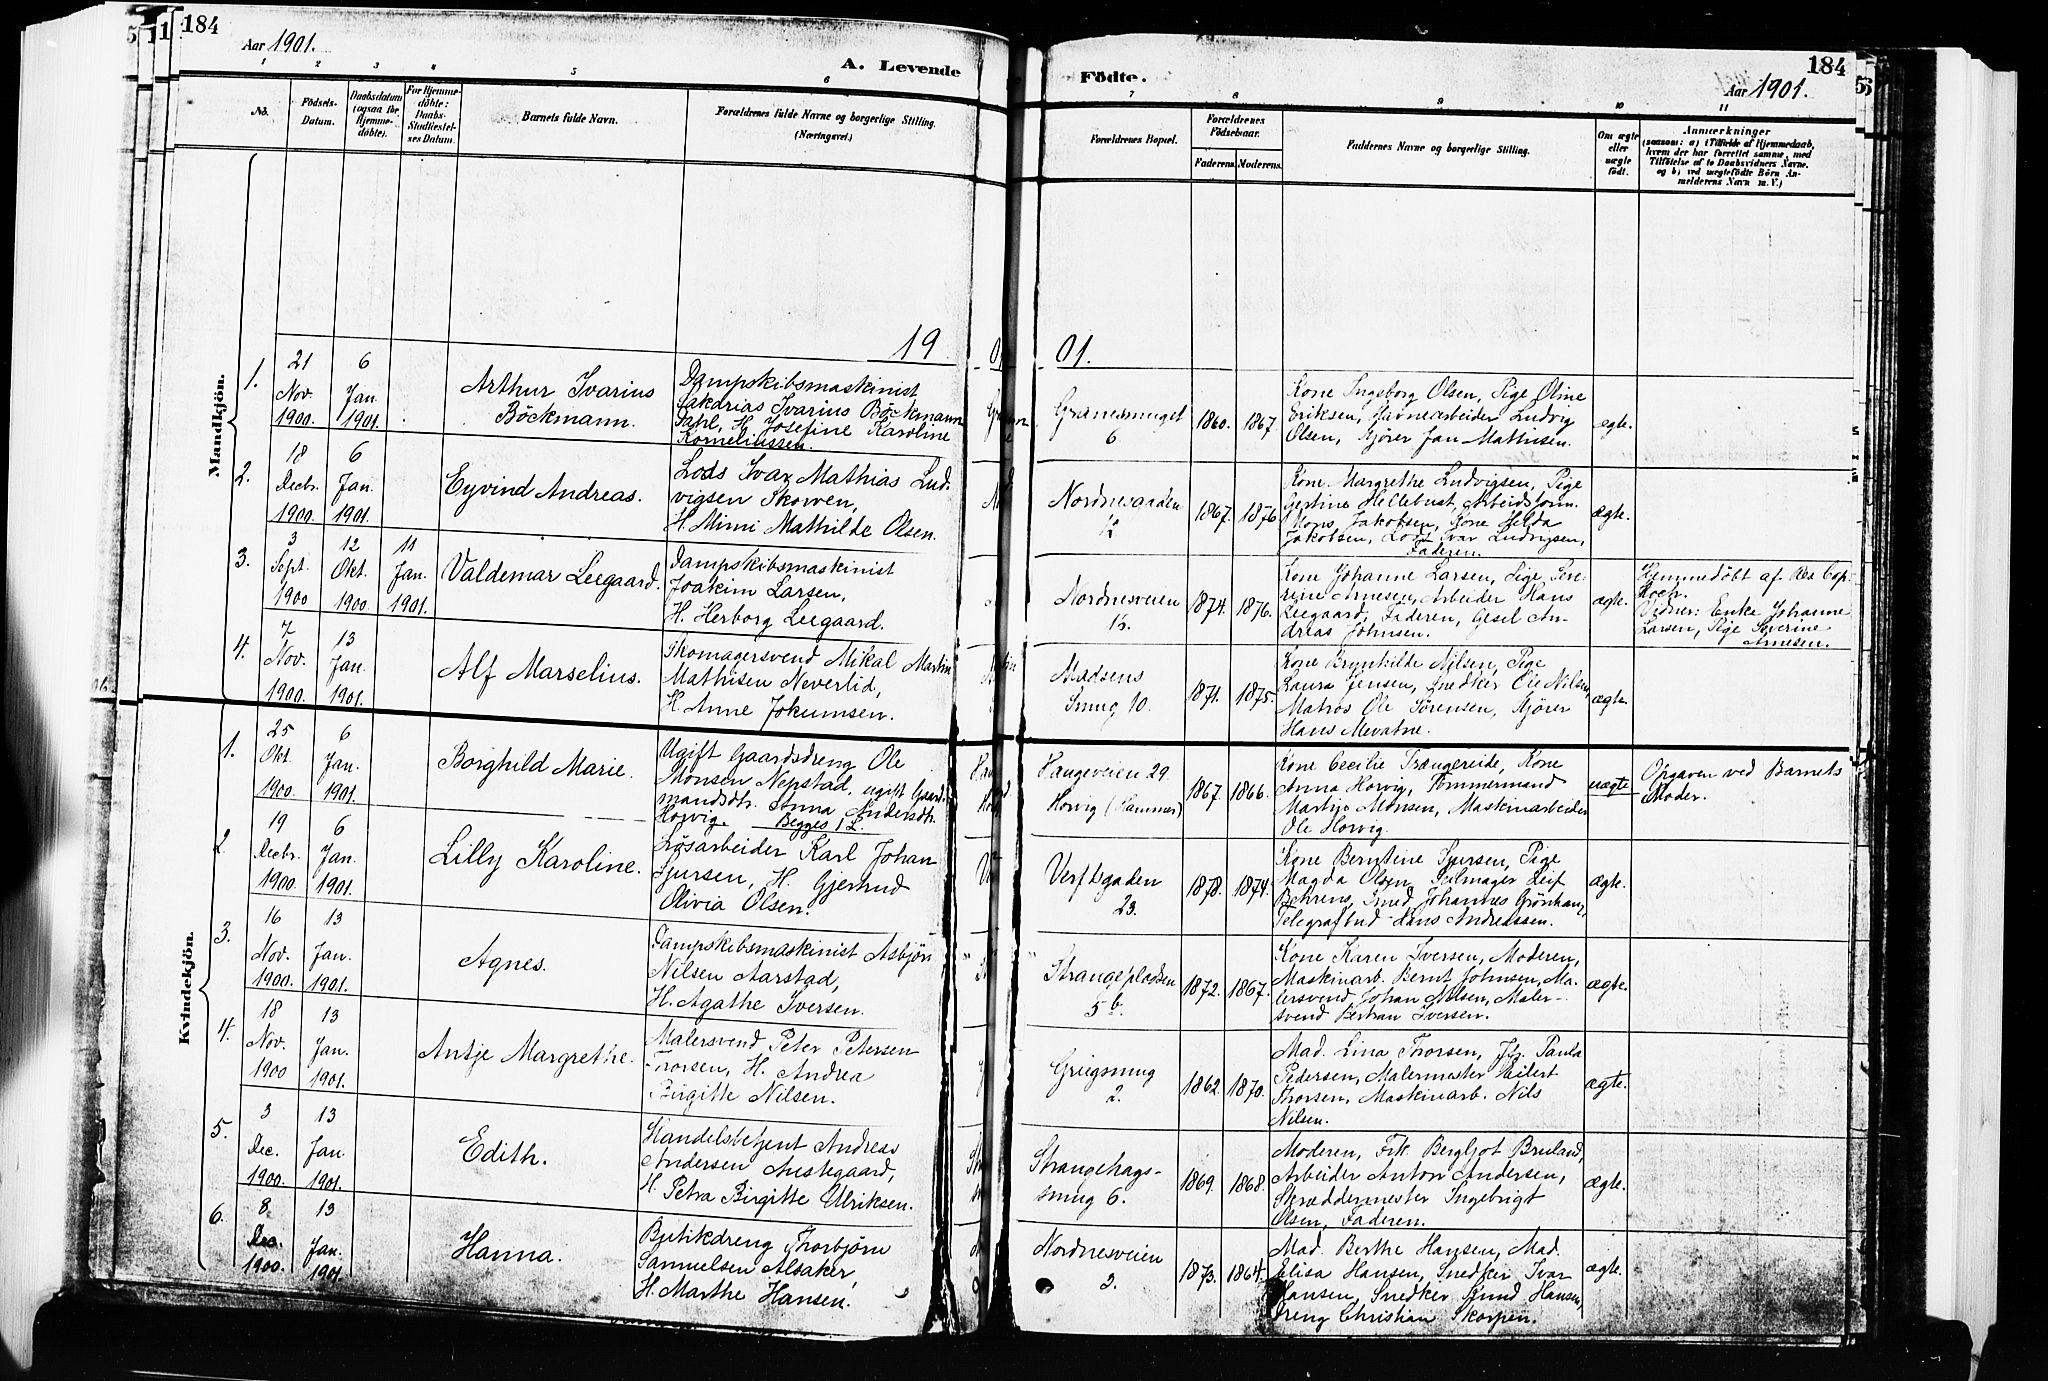 184
Aar 1901.
A. Levende
1 2 3 4 5 6
No.
Födsels-
Datum.
Daabsdatum
(ogsaa for
Hjemme-
döbte).
For Hjemme-
döbte:
Daabs-
Stadfæstel-
ses Datum.
Barnets fulde Navn.
Forældrenes fulde Navne og borgerlige Stilling.
(Næringsvei.)
19
Mandkjön.
1.
21
Nov.
1900.
6
Jan.
1901.
Arthur Ivarius
Böckmann.
Dampskibsmaskinist
Sakarias Ivarius Böckmann
Dahl, H. Josefine Karoline
Korneliussen.
2.
18
Decbr.
1900.
6
Jan.
1901.
Eyvind Andreas.
Lods Ivar Mathias Lud-
vigsen Skowen,
H. Mimi Mathilde Olsen.
3.
3
Sept.
1900
12
Okt.
1900.
11
Jan.
1901.
Valdemar Leegaard.
Dampskibsmaskinist
Joakim Larsen,
H. Herborg Leegaard.
4.
7
Nov.
1900.
13
Jan.
1901.
Alf Marselius.
Skomagersvend Mikal Martin
Mathisen Neverlid,
H. Anne Jokumsen.
Kvindekjön.
1.
25
Okt.
1900.
6
Jan.
1901.
Borghild Marie.
Ugift Gaardsdreng Ole
Monsen Nepstad, ugift Gaard-
mandsdtr. Anna Andersdtr.
Horvig. Begges 1 L.
2.
19
Decbr.
1900.
6
Jan.
1901.
Lilly Karoline.
Løsarbeider Karl Johan
Sjursen, H. Gjertrud
Olivia Olsen.
3.
16
Nov.
1900.
13
Jan.
1901.
Agnes.
Dampskibsmaskinist Asbjörn
Nilsen Aarstad,
H. Agathe Iversen.
4.
18
Nov.
1900
13
Jan.
1901.
Antje Margrethe.
Malersvend Peter Petersen
Thorsen, H. Andrea
Birgitte Nilsen.
5.
3
Dec.
1900.
13
Jan.
1901.
Edith.
Handelsbetjent Andreas
Andersen Austegaard,
H. Petra Birgitte Ulriksen.
6.
8
Dec.
1900.
13
Jan.
1901.
Hanna.
Butikdreng Thorbjørn
Samuelsen Alsaker,
H. Marthe Hansen.
184
Födte.
Aar 1901.
7 8 9 10 11
Forældrenes Bopæl.
Forældrenes
Födselsaar.
Faderens.
Moderens.
Faddernes Navne og borgerlige Stilling.
Om ægte
eller
uægte
født.
Anmærkninger
(saasom: a) i Tilfælde af Hjemmedaab,
hvem der har forrettet samme, med
Tilföielse af to Daabsvidners Navne.
og b) ved uægtefödte Börn An-
melderens Navn m. V.)
01.
Granesmuget
6.
1860.
1867.
Kone Ingeborg Olsen, Pige Oline
Eriksen, Havnearbeider Ludvig
Olsen, Kjører Jan Mathisen.
ægte.
Nordnesgaden
1867.
1876
Kone Margrethe Ludvigsen, Pige
Gestine Hellebust, Arbeidsform.
Mons Jakobsen, Kone Helda
Jakobsen, Lods Ivar Ludvigsen,
Faderen.
ægte.
Nordnesveien
1874.
1876.
Kone Johanne Larsen, Pige Seve-
rine Arnesen, Arbeider Hans
Leegaard, Faderen, Gesel An-
dreas Johnsen.
ægte.
Hjemmedöbt af Res. Cap.
Koch.
Vidner: Enke Johanne
Larsen, Pige Severine
Arnesen.
Madsens
Smug 10.
1871.
1875.
Kone Brynhilde Nilsen, Pige
Laura Jensen, Snedker Ole Nilsen,
Matros Ole Sørensen, Kjører
Hans Mevatne.
ægte.
Haugeveien 29.
Horvig (Hammer)
1867.
1866.
Kone Cecilie Trængereide, Kone
Anna Horvig, Tømmermand
Martin Monsen, Maskinarbeider
Ole Horvig.
uægte
Opgaven ved Barnets
Moder.
Verftsgaden
23.
1878.
1874.
Kone Berntine Sjursen, Pige
Magda Olsen, Seilmager Leif
Behrens, Smed Johannes Grönhaug,
Telegrafbud Hans Andreassen.
ægte.
Strangepladsen
5 b.
1872.
1867.
Kone Karen Iversen, Moderen,
Maskinarb. Bernt Johnsen, Ma-
lersvend Johan Nilsen, Maler-
svend Bertran Iversen.
ægte.
Griegsmug
2.
1862.
1870.
Mad. Lina Thorsen, Jfr. Paula
Pedersen, Malermester Eilert
Thorsen, Maskinarb. Nils
Nilsen.
ægte.
Strangehags-
smug 6.
1869.
1868.
Moderen, Frk. Bergljot Breiland,
Arbeider Anton Andersen,
Skræddermester Ingebrigt
Olsen, Faderen.
ægte.
Nordnesveien
2.
1873.
1864.
Mad. Berthe Hansen, Mad.
Elisa Hansen, Snedker Ivar
Hansen, Snedker Knud Hansen,
Dreng Christian Skorpen.
ægte.